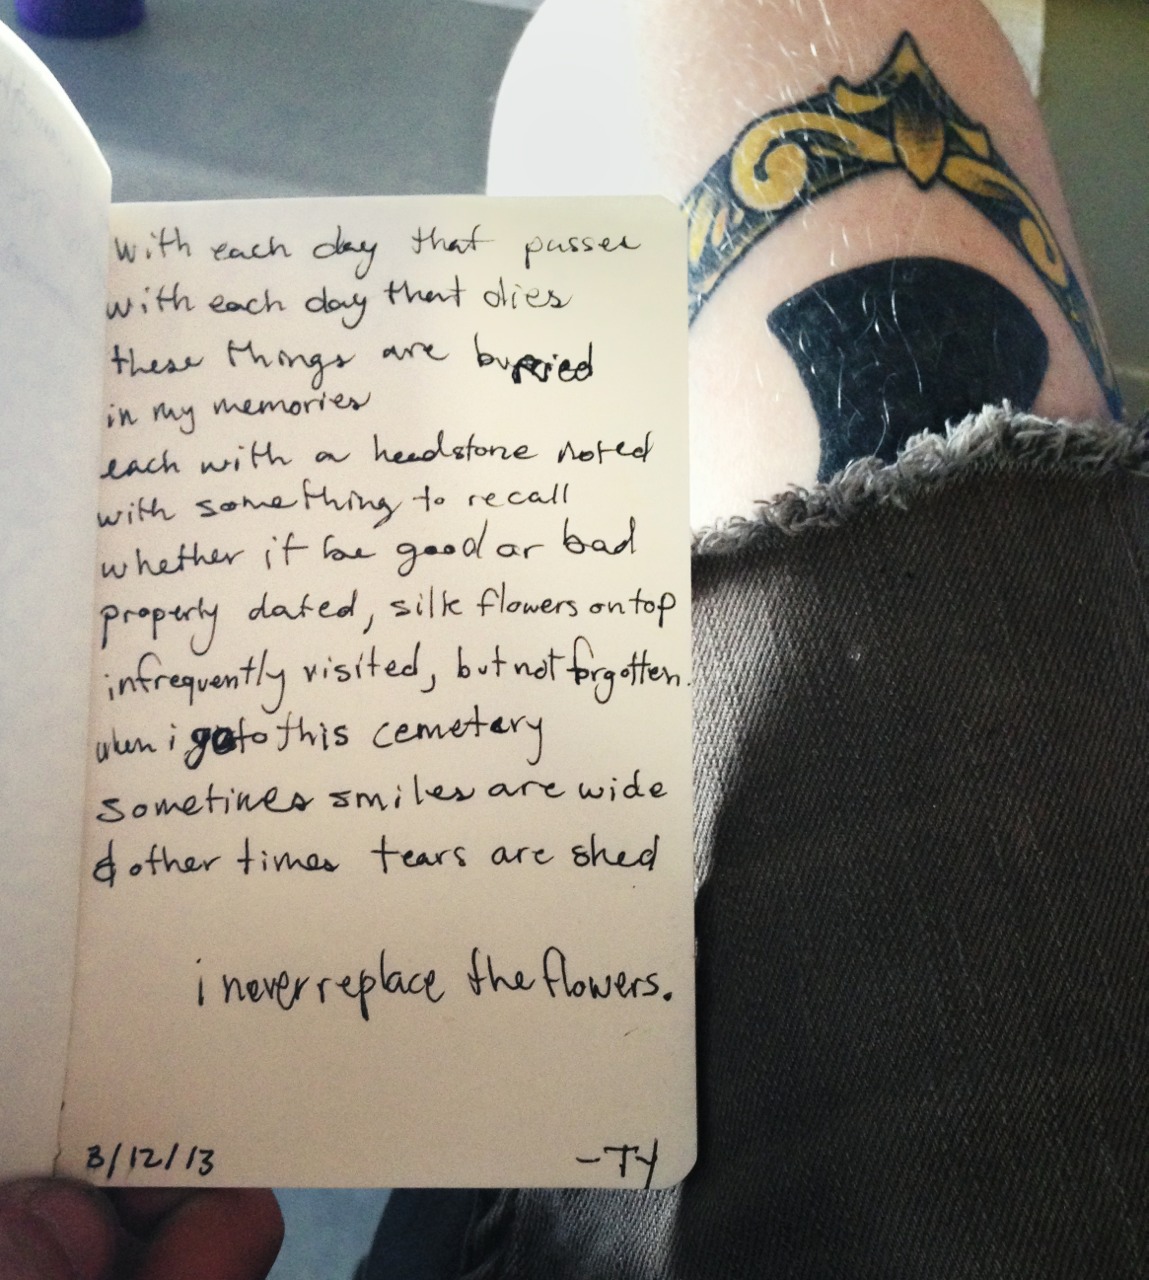 with each day that passes
with each day that dies
these things are buried
in my memories
each with a headstone noted
with something to recall
whether it be good or bad
properly dated, silk flowers on top
infrequently visited, but not forgotten.
when i go to this cemetery
sometimes smiles are wide
& other times tears are shed
i never replace the flowers.
3/12/13
-TY